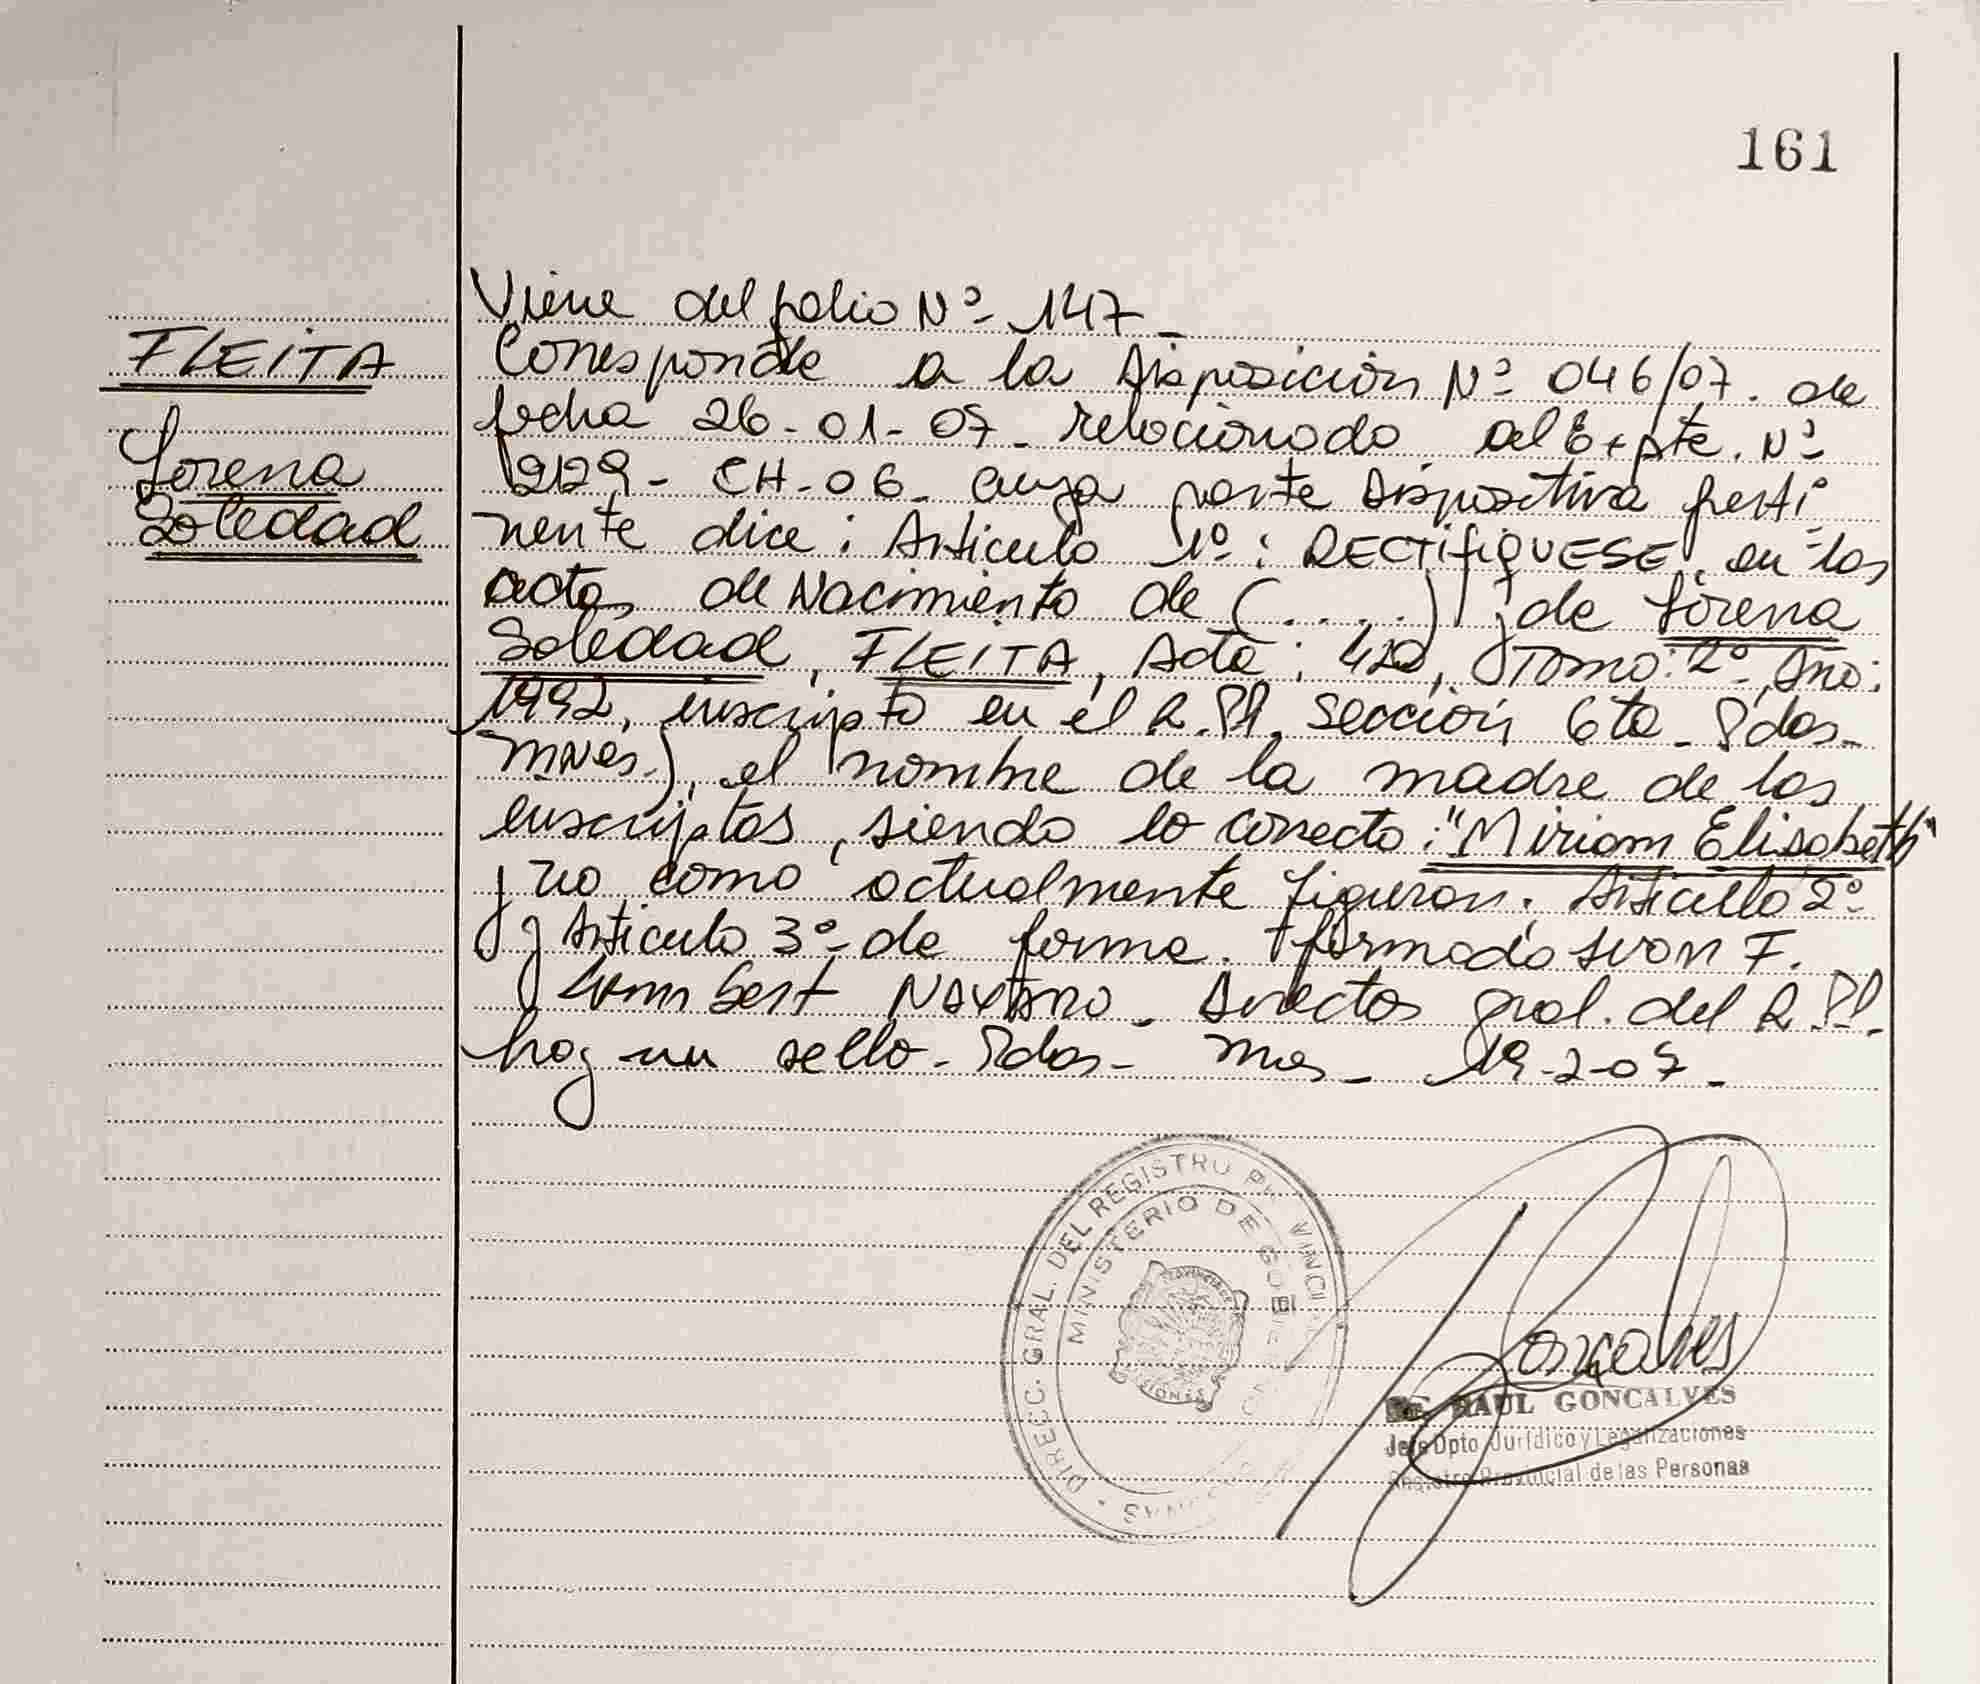 161
FLEITA
Lorena
Soledad
Viene del folio Nº 147_
Corresponde a la Disposición Nº 046/07. de
fecha 26-01-07_ relacionado al Expte. Nº
2129- CH-06_ cuya parte dispositiva perti
nente dice: Articulo 1º: RECTIFIQUESE, en las
actas de Nacimiento de (.....) y de Lorena
Soledad, FLEITA, Acta: 422, Tomo: 2º, Año:
1992, inscripto en el R.P.P. Sección 6ta_ Pdas_
Mnes.), el nombre de la madre de los
inscriptos, siendo lo correcto: "Miriam Elisabeth"
y no como actualmente figuran. Articulo 2º
y Articulo 3º de forma. firmado Ivan F.
Navarro_ Director gral. del R.P.P.
hay un sello_ Pdas_ Mnes_ 19-2-07_
DIRECC. GRAL. DEL REGISTRO PROVINCIAL
MINISTERIO DE GOBIERNO
MISIONES
Goncalves
RAUL GONCALVES
Jefe Dpto Jurídico y Legalizaciones
Registro Provincial de las Personas